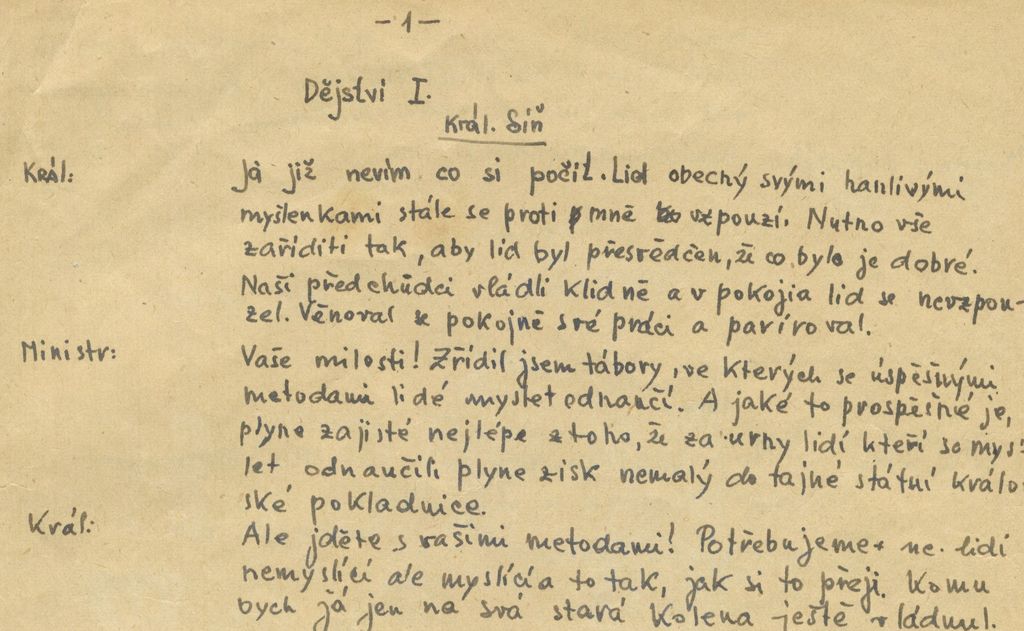 – 1 –
Dějství I.
Král. Síň
Král: Já již nevím co si počít. Lid obecný svými hanlivými
myšlenkami stále se proti mně vzpouzí. Nutno vše
zaříditi tak, aby lid byl přesvědčen, že co bylo je dobré.
Naši předchůdci vládli klidně a v pokoji a lid se nevzpou-
zel. Věnoval se pokojně své práci a paríroval.
Ministr: Vaše milosti! Zřídil jsem tábory, ve kterých se úspěšnými
metodami lidé myslet odnaučí. A jaké to prospěšné je,
plyne zajisté nejlépe z toho, že za urny lidí kteří se mys-
let odnaučili plyne zisk nemalý do tajné státní králo-
ské pokladnice.
Král: Ale jděte s vašimi metodami! Potřebujeme ne lidí
nemyslící ale myslící a to tak, jak si to přeji. Komu
bych já jen na svá stará kolena ještě vládnul.